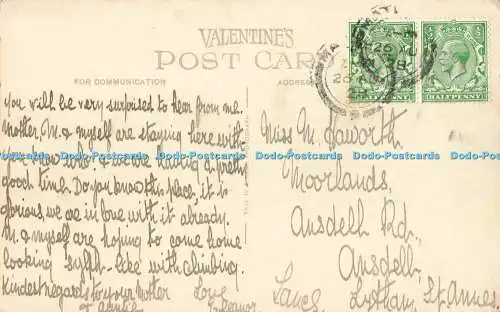 VALENTINE'S
POST CARD
FOR COMMUNICATION
ADDRESS
HALFPENNY
you will be very surprised to hear from me.
Mother, M. & myself are staying here with
for a week & we are having a pretty
good time. Do you know this place, it is
glorious, we are in love with it already.
M. & myself are hoping to come home
looking sylph-like with climbing.
Kindest regards to your Mother
& auntie Love
Eleanor.
Miss M. Haworth.
Moorlands,
Ansdell Rd.,
Ansdell,
Lytham, St. Annes
Lancs.
Dodo-Postcards Dodo-Postcards Dodo-Postcards Dodo-Postcards Dodo-Postcards